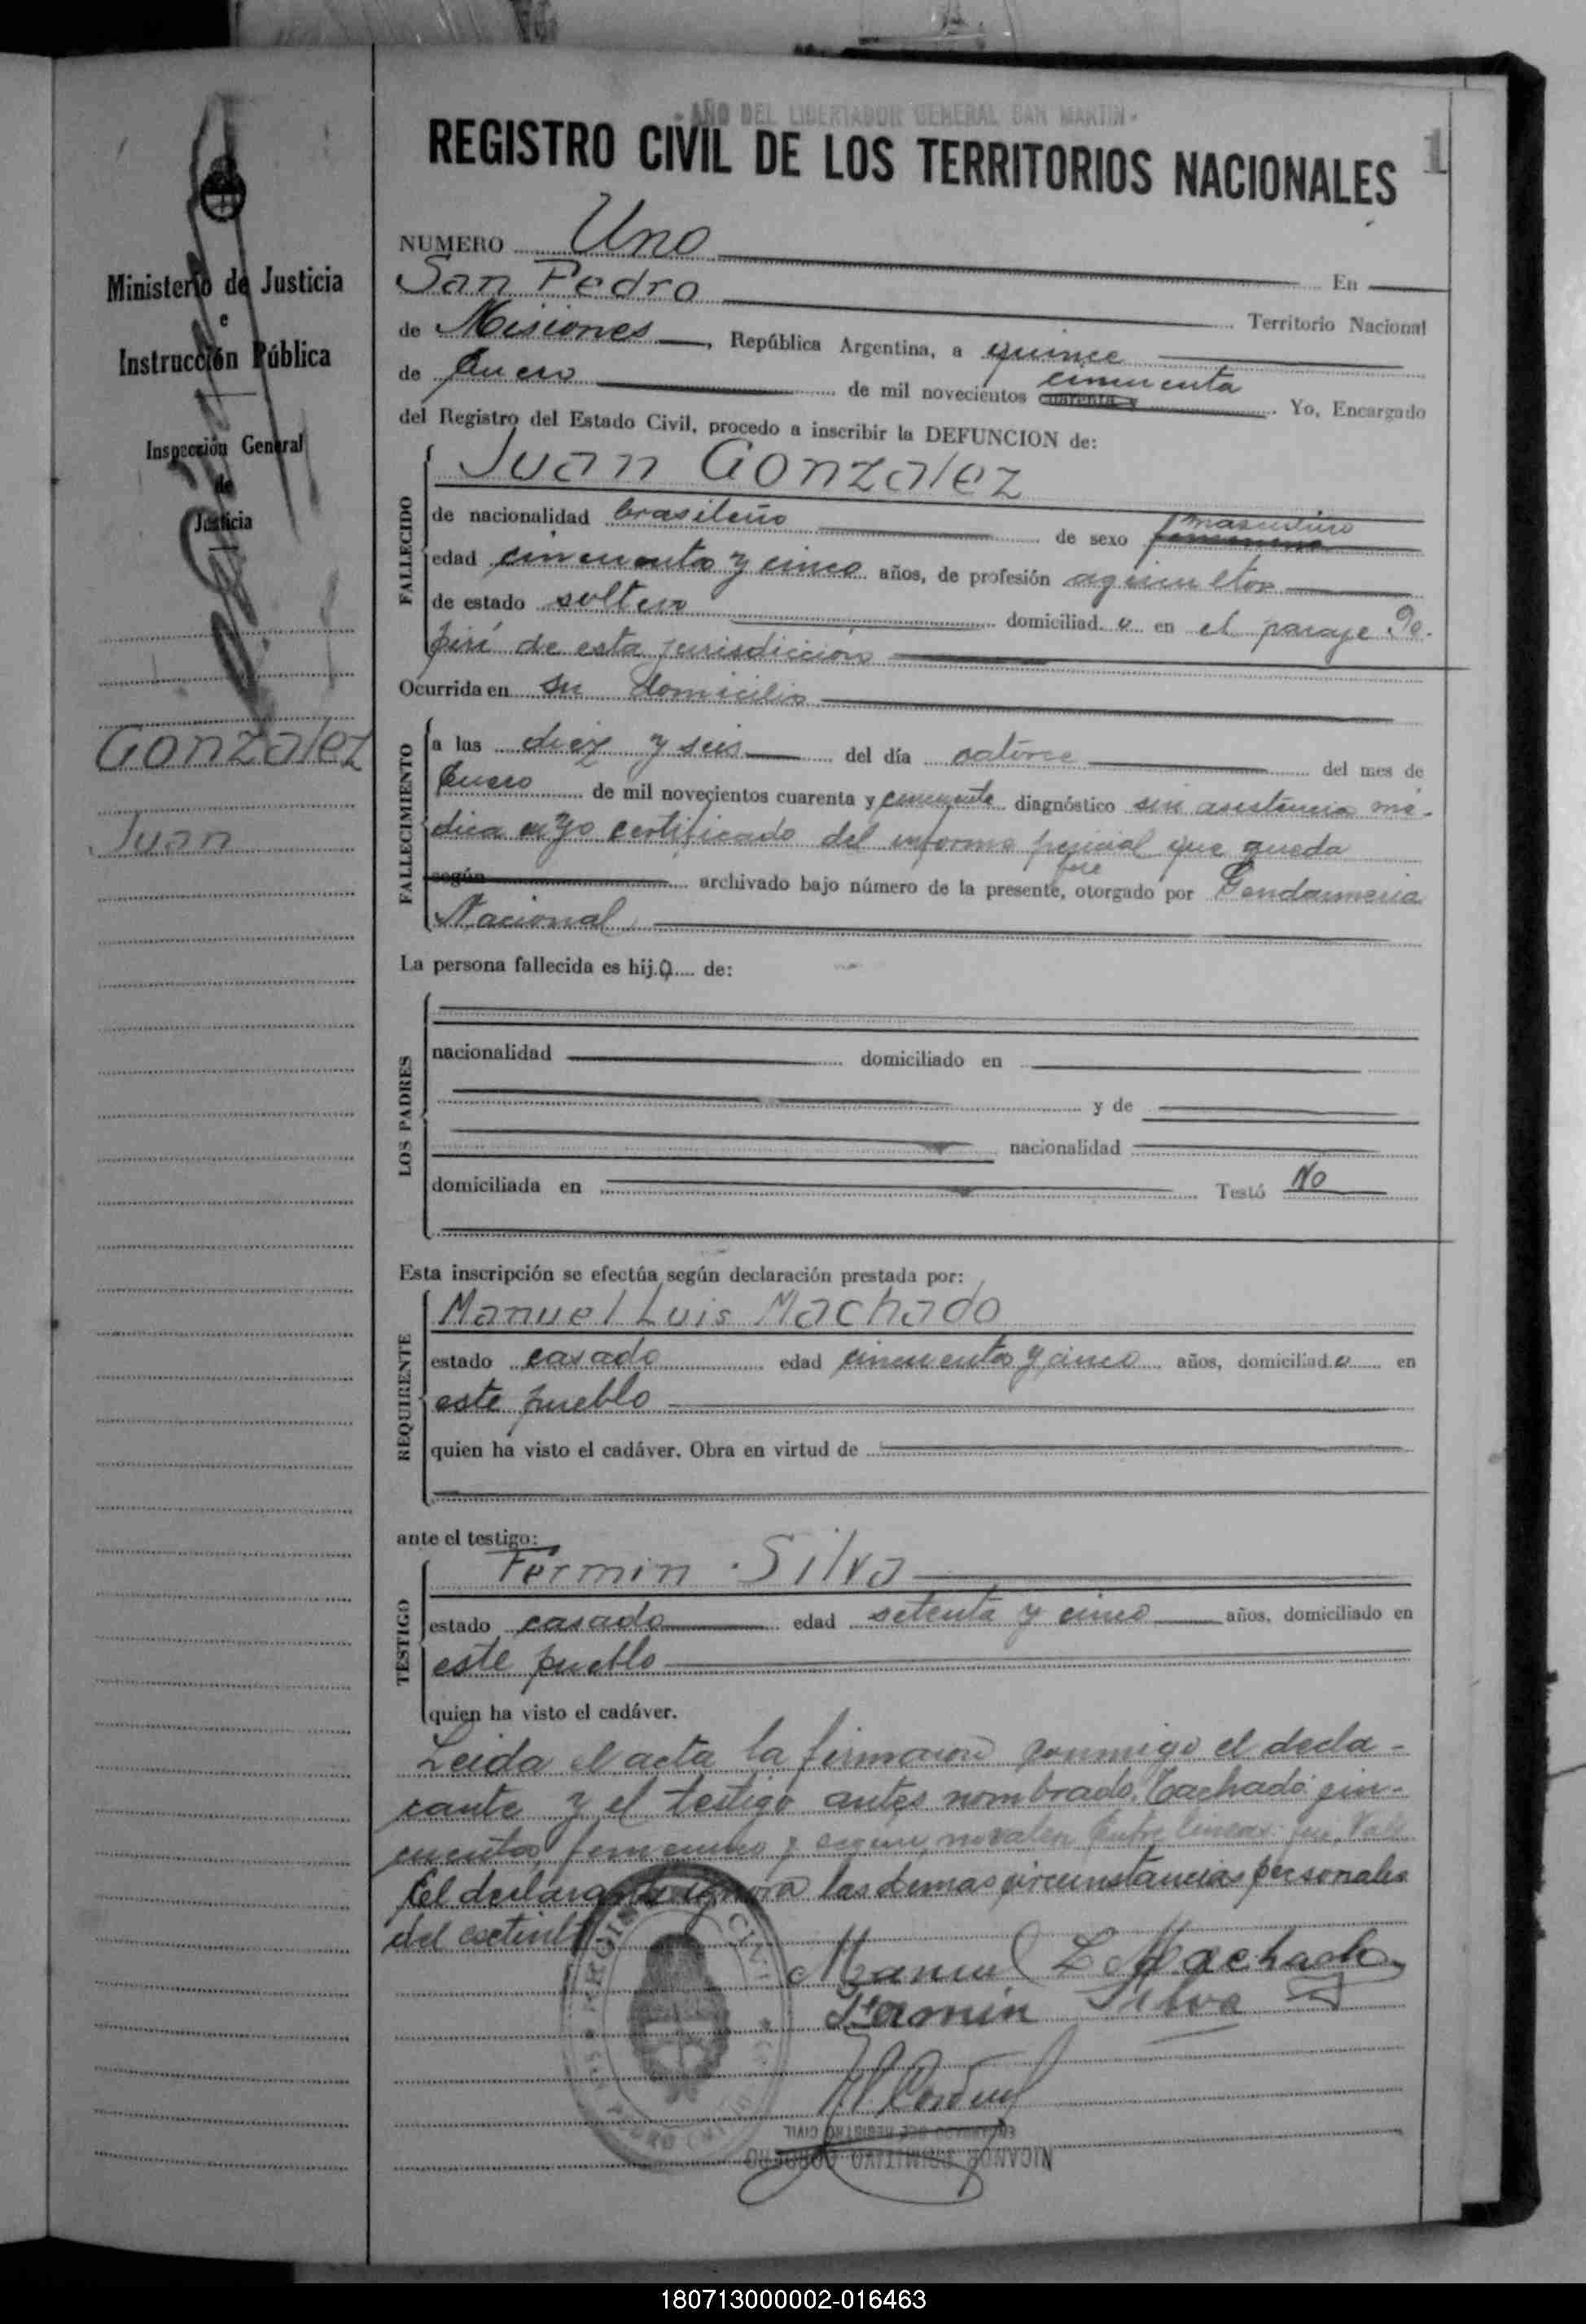 Ministerio de Justicia
e
Instrucción Pública
Inspección General
de
Justicia
Gonzalez
Juan
AÑO DEL LIBERTADOR GENERAL SAN MARTIN
1
REGISTRO CIVIL DE LOS TERRITORIOS NACIONALES
NUMERO Uno En
San Pedro Territorio Nacional
de Misiones, República Argentina, a quince
de Enero de mil novecientos cuarenta y cincuenta Yo, Encargado
del Registro del Estado Civil, procedo a inscribir la DEFUNCION de:
FALLECIDO
Juan Gonzalez
de nacionalidad brasileño de sexo femenino masculino
edad cincuenta y cinco años, de profesión agricultor
de estado soltero domiciliad o en el paraje Pe-
pirí de esta jurisdicción
Ocurrida en su domicilio
FALLECIMIENTO
a las diez y seis del día catorce del mes de
Enero de mil novecientos cuarenta y cincuenta diagnóstico sin asistencia mé-
dica cuyo certificado del informe pericial que queda
según archivado bajo número de la presente, fue otorgado por Gendarmeria
Nacional
La persona fallecida es hij.o de:
LOS PADRES
nacionalidad domiciliado en
y de
nacionalidad
domiciliada en Testó No
Esta inscripción se efectúa según declaración prestada por:
REQUIRENTE
Manuel Luis Machado
estado casado edad cincuenta y cinco años, domiciliad o en
este pueblo
quien ha visto el cadáver. Obra en virtud de
ante el testigo:
TESTIGO
Fermin Silva
estado casado edad setenta y cinco años, domiciliado en
este pueblo
quien ha visto el cadáver.
Leida el acta la firmaron conmigo el decla-
rante y el testigo antes nombrado. Tachado: cin-
cuenta, femenino y según, no valen Entre lineas: fue, Vale
El declarante ignora las demas circunstancias personales
del extinto
Manuel L Machado
Fermin Silva
ENCARGADO DEL REGISTRO CIVIL
NICANOR PRIMITIVO CORDERO
180713000002-016463